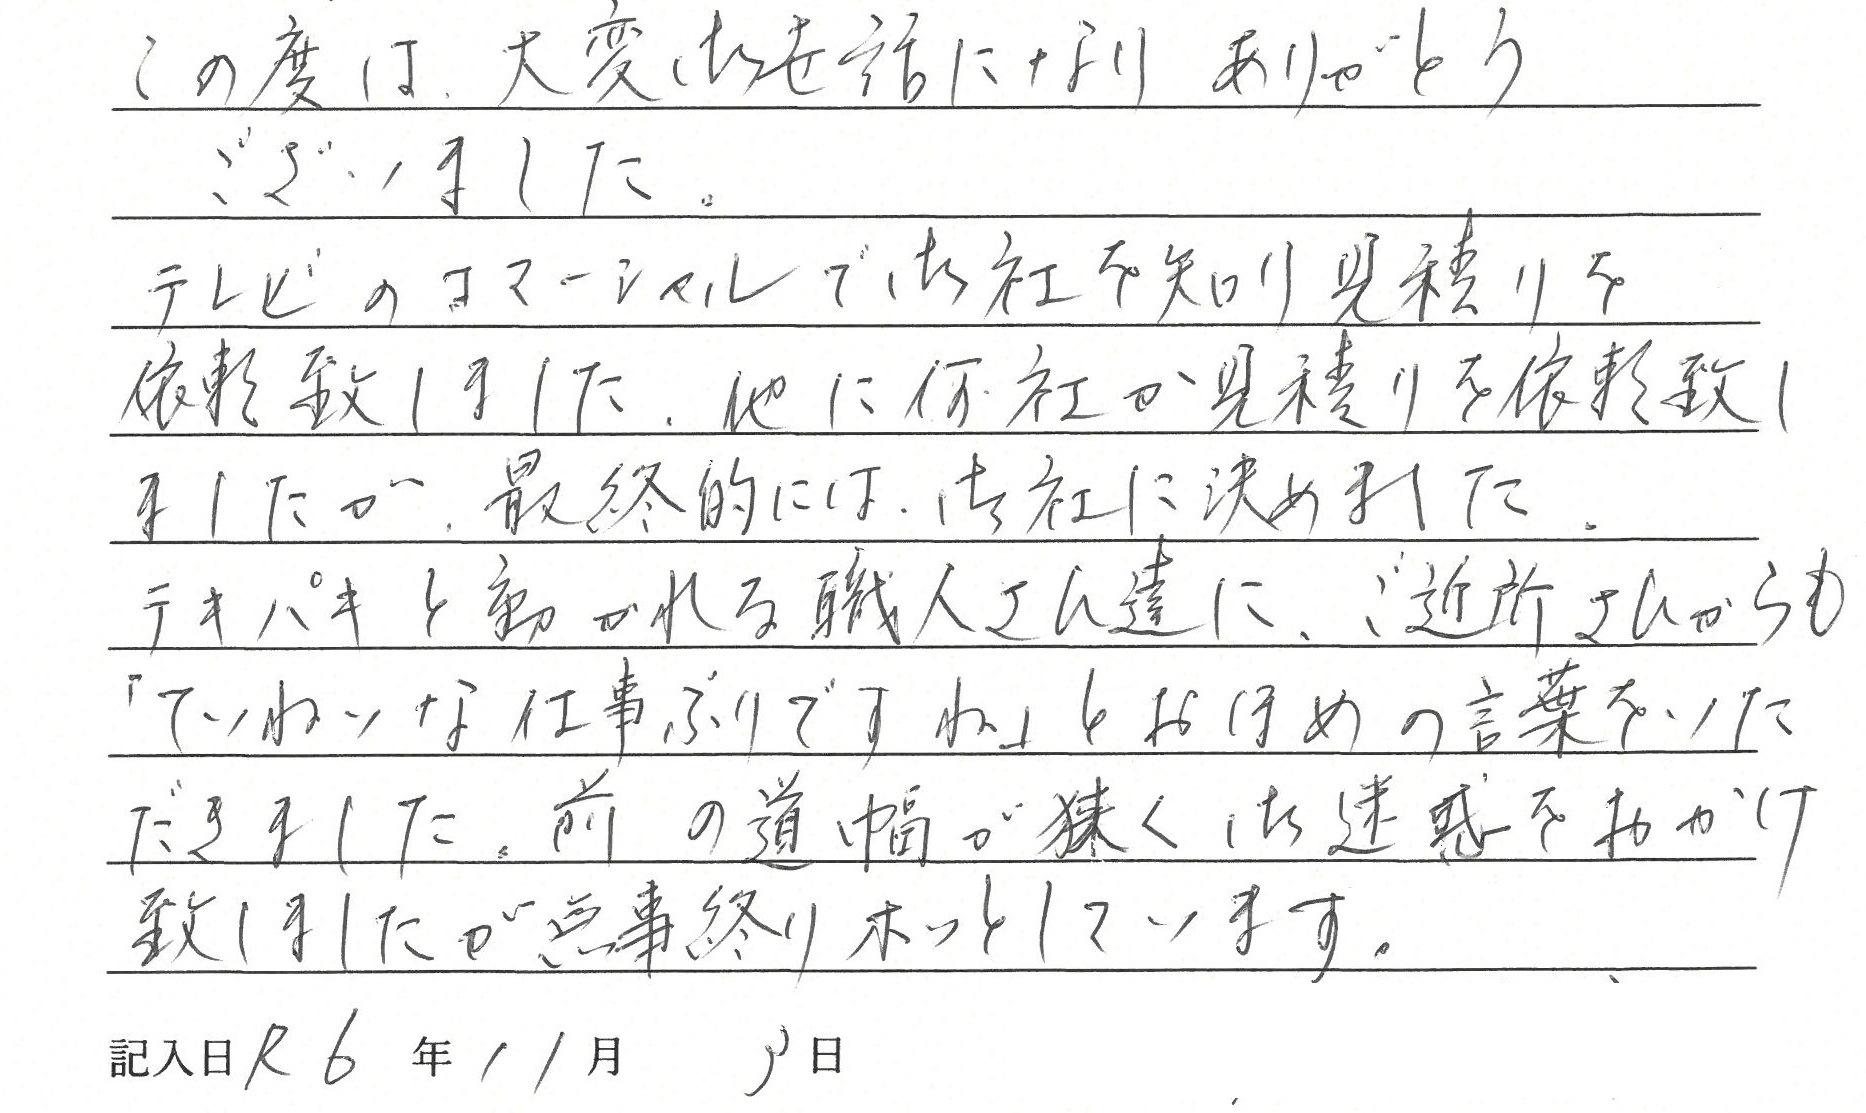 この度は、大変御世話になり ありがとう
ございました。
テレビのコマーシャルで御社を知り見積りを
依頼致しました。他に何社か見積りを依頼致し
ましたが、最終的には、御社に決めました。
テキパキと動かれる職人さん達に、ご近所さんからも
「ていねいな仕事ぶりですね」とおほめの言葉をいた
だきました。前の道幅が狭く御迷惑をおかけ
致しましたが無事終りホッとしています。
記入日 R6 年 11 月 3 日